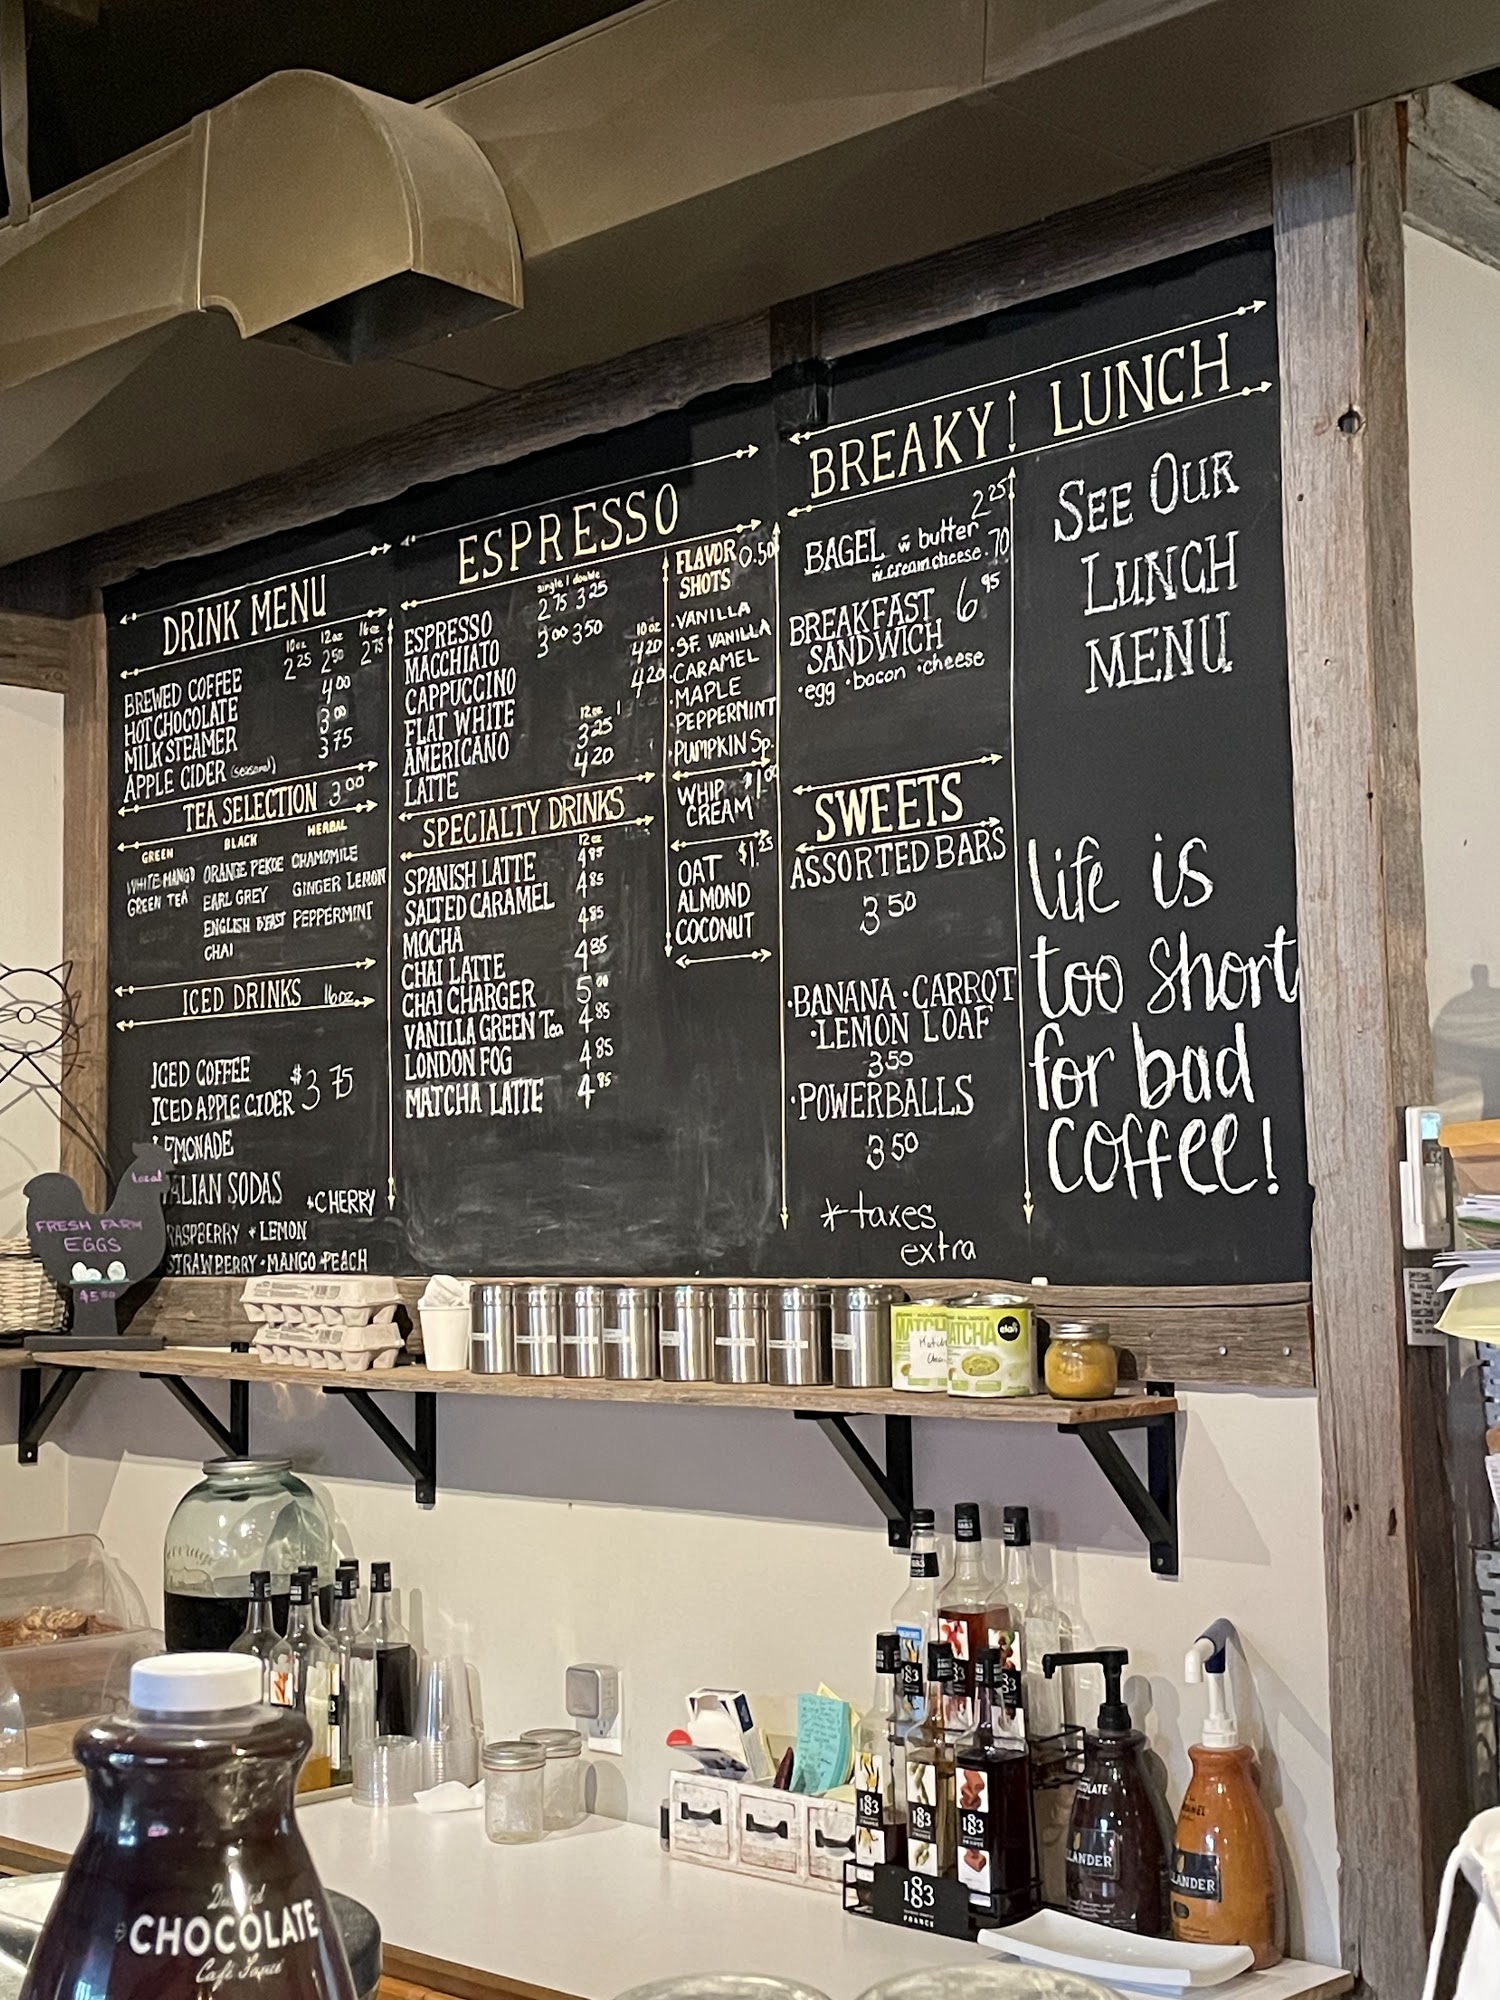 DRINK MENU
10oz 12oz 16oz
BREWED COFFEE 2 25 2 50 2 75
HOT CHOCOLATE 4 00
MILK STEAMER 3 00
APPLE CIDER (seasonal) 3 75
TEA SELECTION 3 00
GREEN BLACK HERBAL
WHITE MANGO ORANGE PEKOE CHAMOMILE
GREEN TEA EARL GREY GINGER LEMON
ENGLISH B'FAST PEPPERMINT
CHAI
ICED DRINKS 16oz
ICED COFFEE
ICED APPLE CIDER $3 75
EMONADE
ALIAN SODAS
CHERRY
RASPBERRY LEMON
STRAWBERRY • MANGO PEACH
ESPRESSO
single | double
ESPRESSO 2 75 3 25
MACCHIATO 3 00 3 50 10 oz
CAPPUCCINO 4 20
FLAT WHITE 4 20
12oz
AMERICANO 3 25
LATTE 4 20
SPECIALTY DRINKS
12oz
SPANISH LATTE 4 85
SALTED CARAMEL 4 85
MOCHA 4 85
CHAI LATTE 4 85
CHAI CHARGER 5 00
VANILLA GREEN Tea 4 85
LONDON FOG 4 85
MATCHA LATTE 4 85
FLAVOR 0.50
SHOTS
• VANILLA
• S.F. VANILLA
• CARAMEL
• MAPLE
• PEPPERMINT
• PUMPKIN Sp.
WHIP $1.00
CREAM
OAT $1.25
ALMOND
COCONUT
BREAKY
BAGEL w butter 2 25
w. cream cheese .70
BREAKFAST 6 95
SANDWICH
• egg • bacon • cheese
SWEETS
ASSORTED BARS
3 50
• BANANA • CARROT
• LEMON LOAF
3 50
• POWERBALLS
3 50
* taxes
extra
LUNCH
SEE OUR
LUNCH
MENU
life is
too short
for bad
coffee!
Local
FRESH FARM
EGGS
$5.50
MATCH
MATCHA
elan
183
183
183
183
FRANCE
LANDER
LANDER
CHOCOLATE